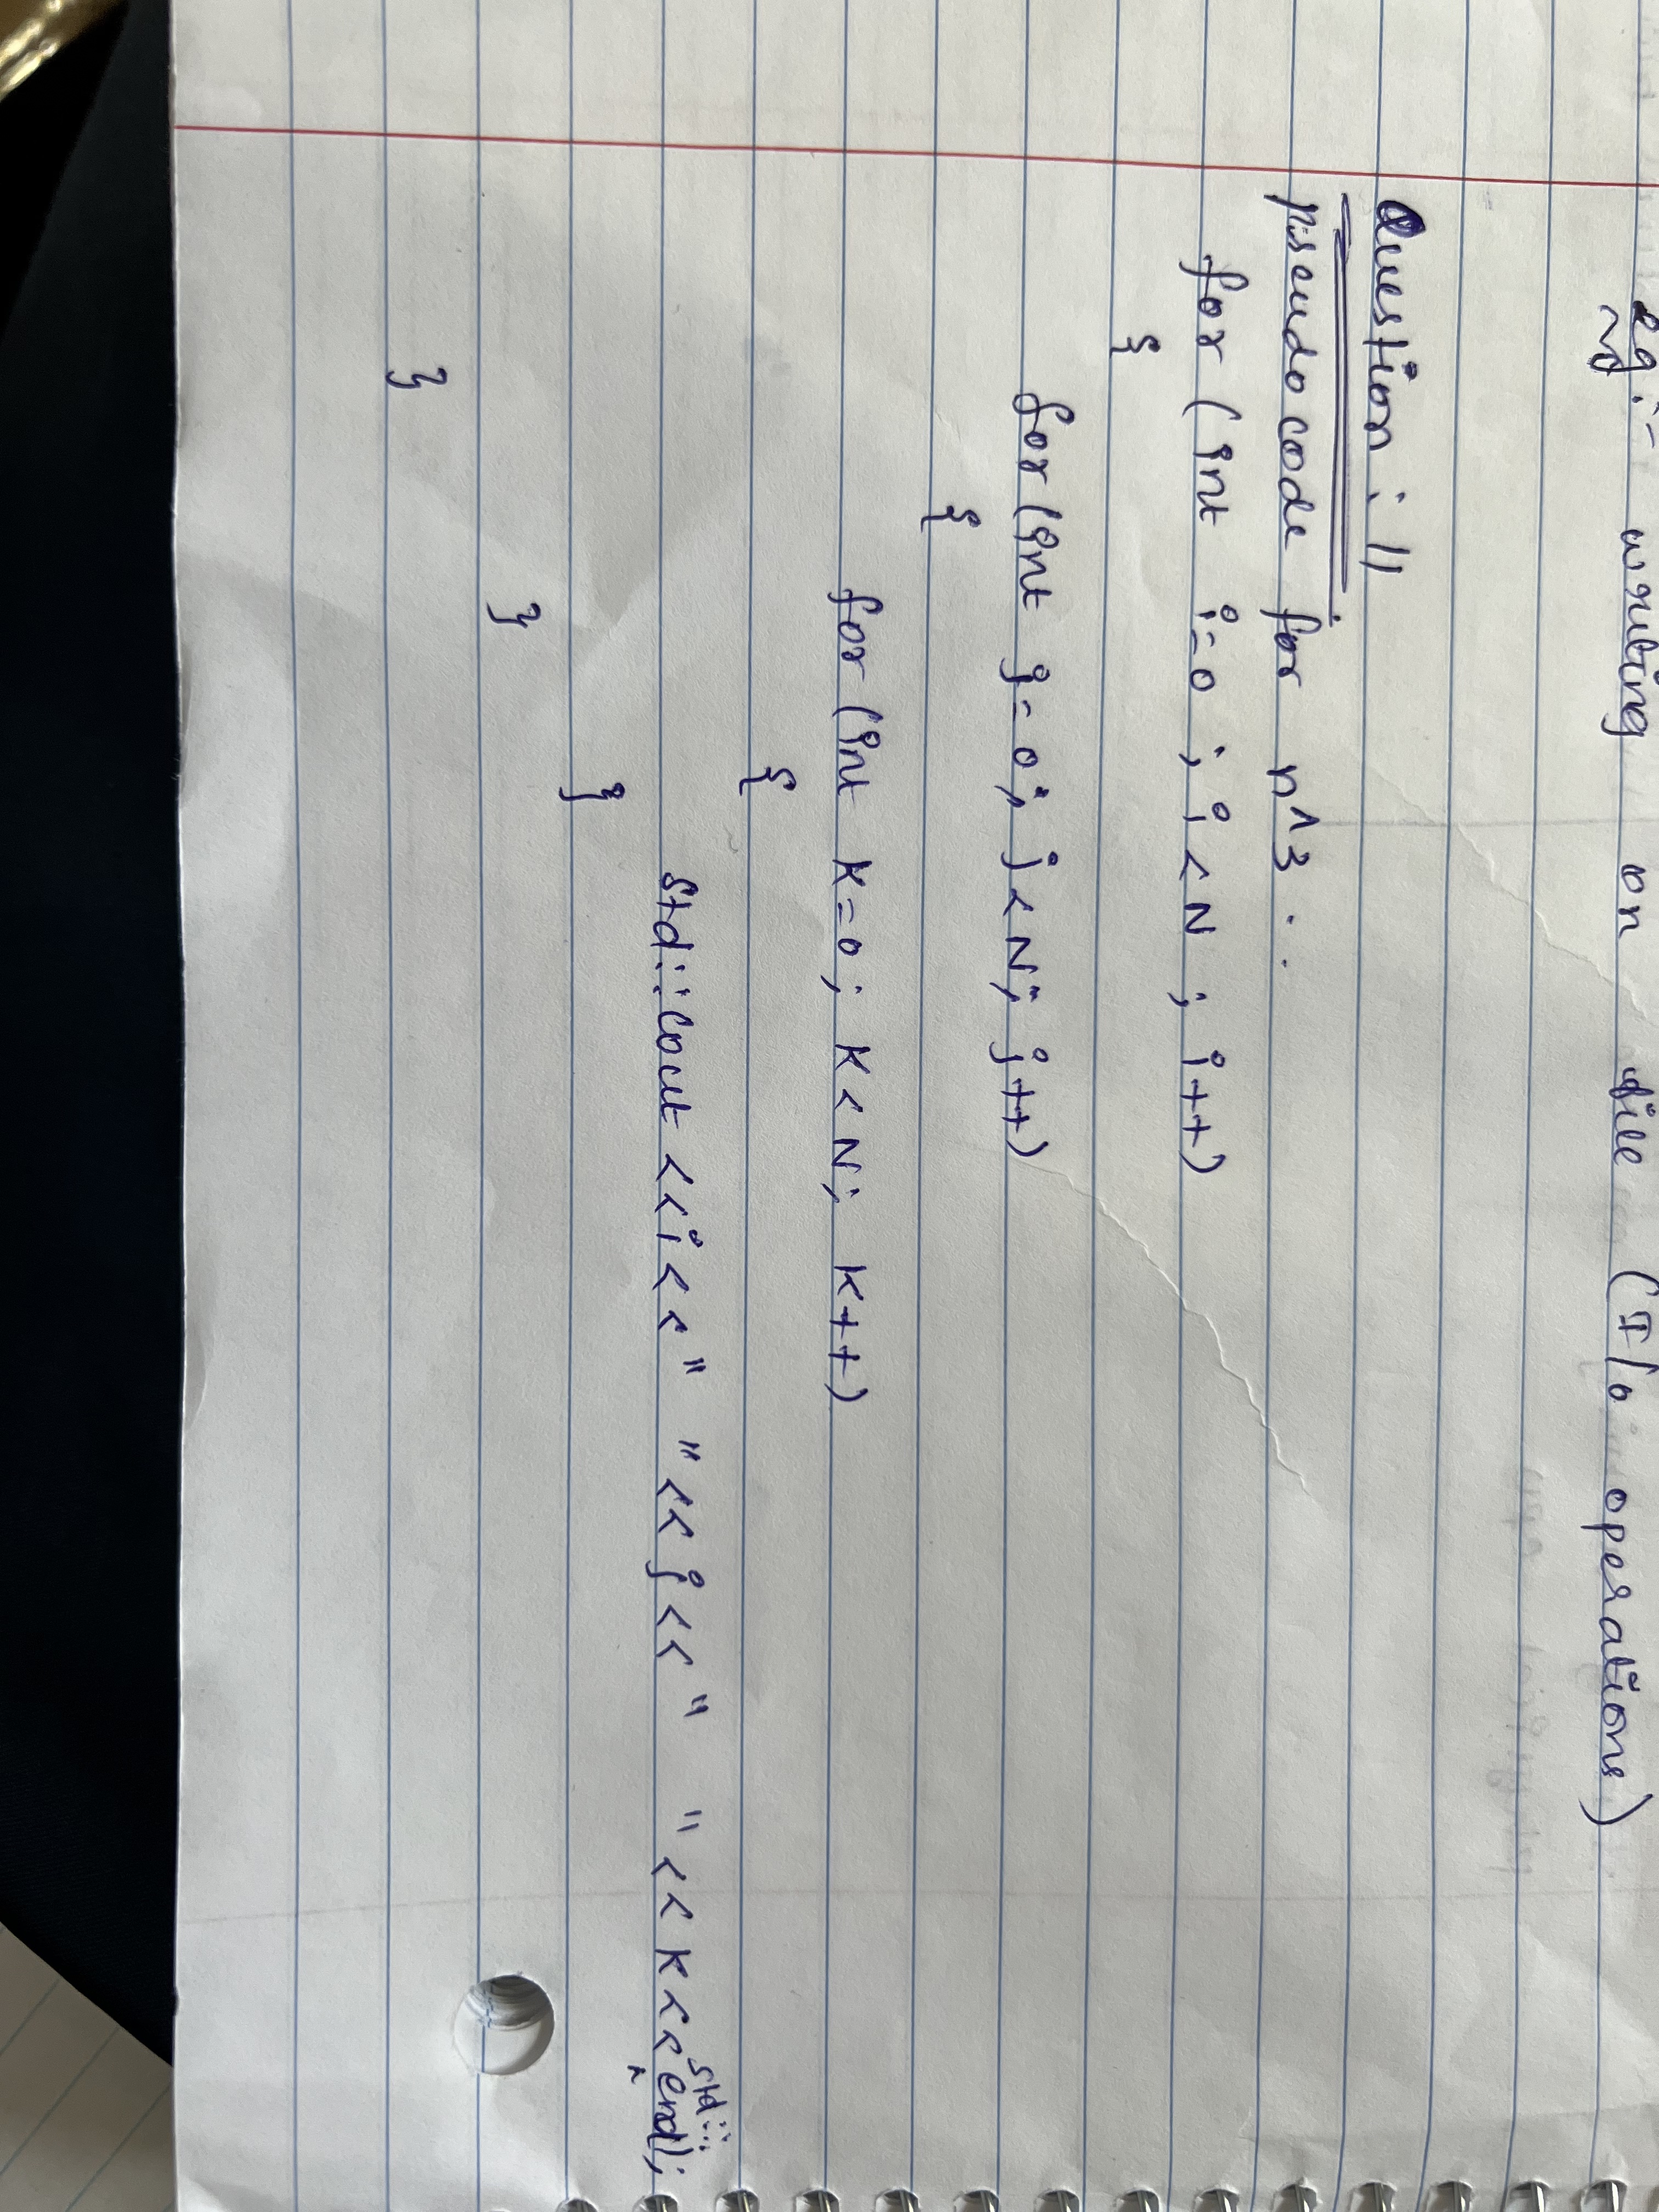 eg:- writing on file (I/o operations)
Question: 11
pseudocode for n^3 :.
for (int i=0 ; i<N ; i++)
{
for (int j=0; j<N; j++)
{
for (int k=0; k<N; k++)
{
std::cout <<i<<" "<<j<<" "<<k<<std::endl;
}
}
}